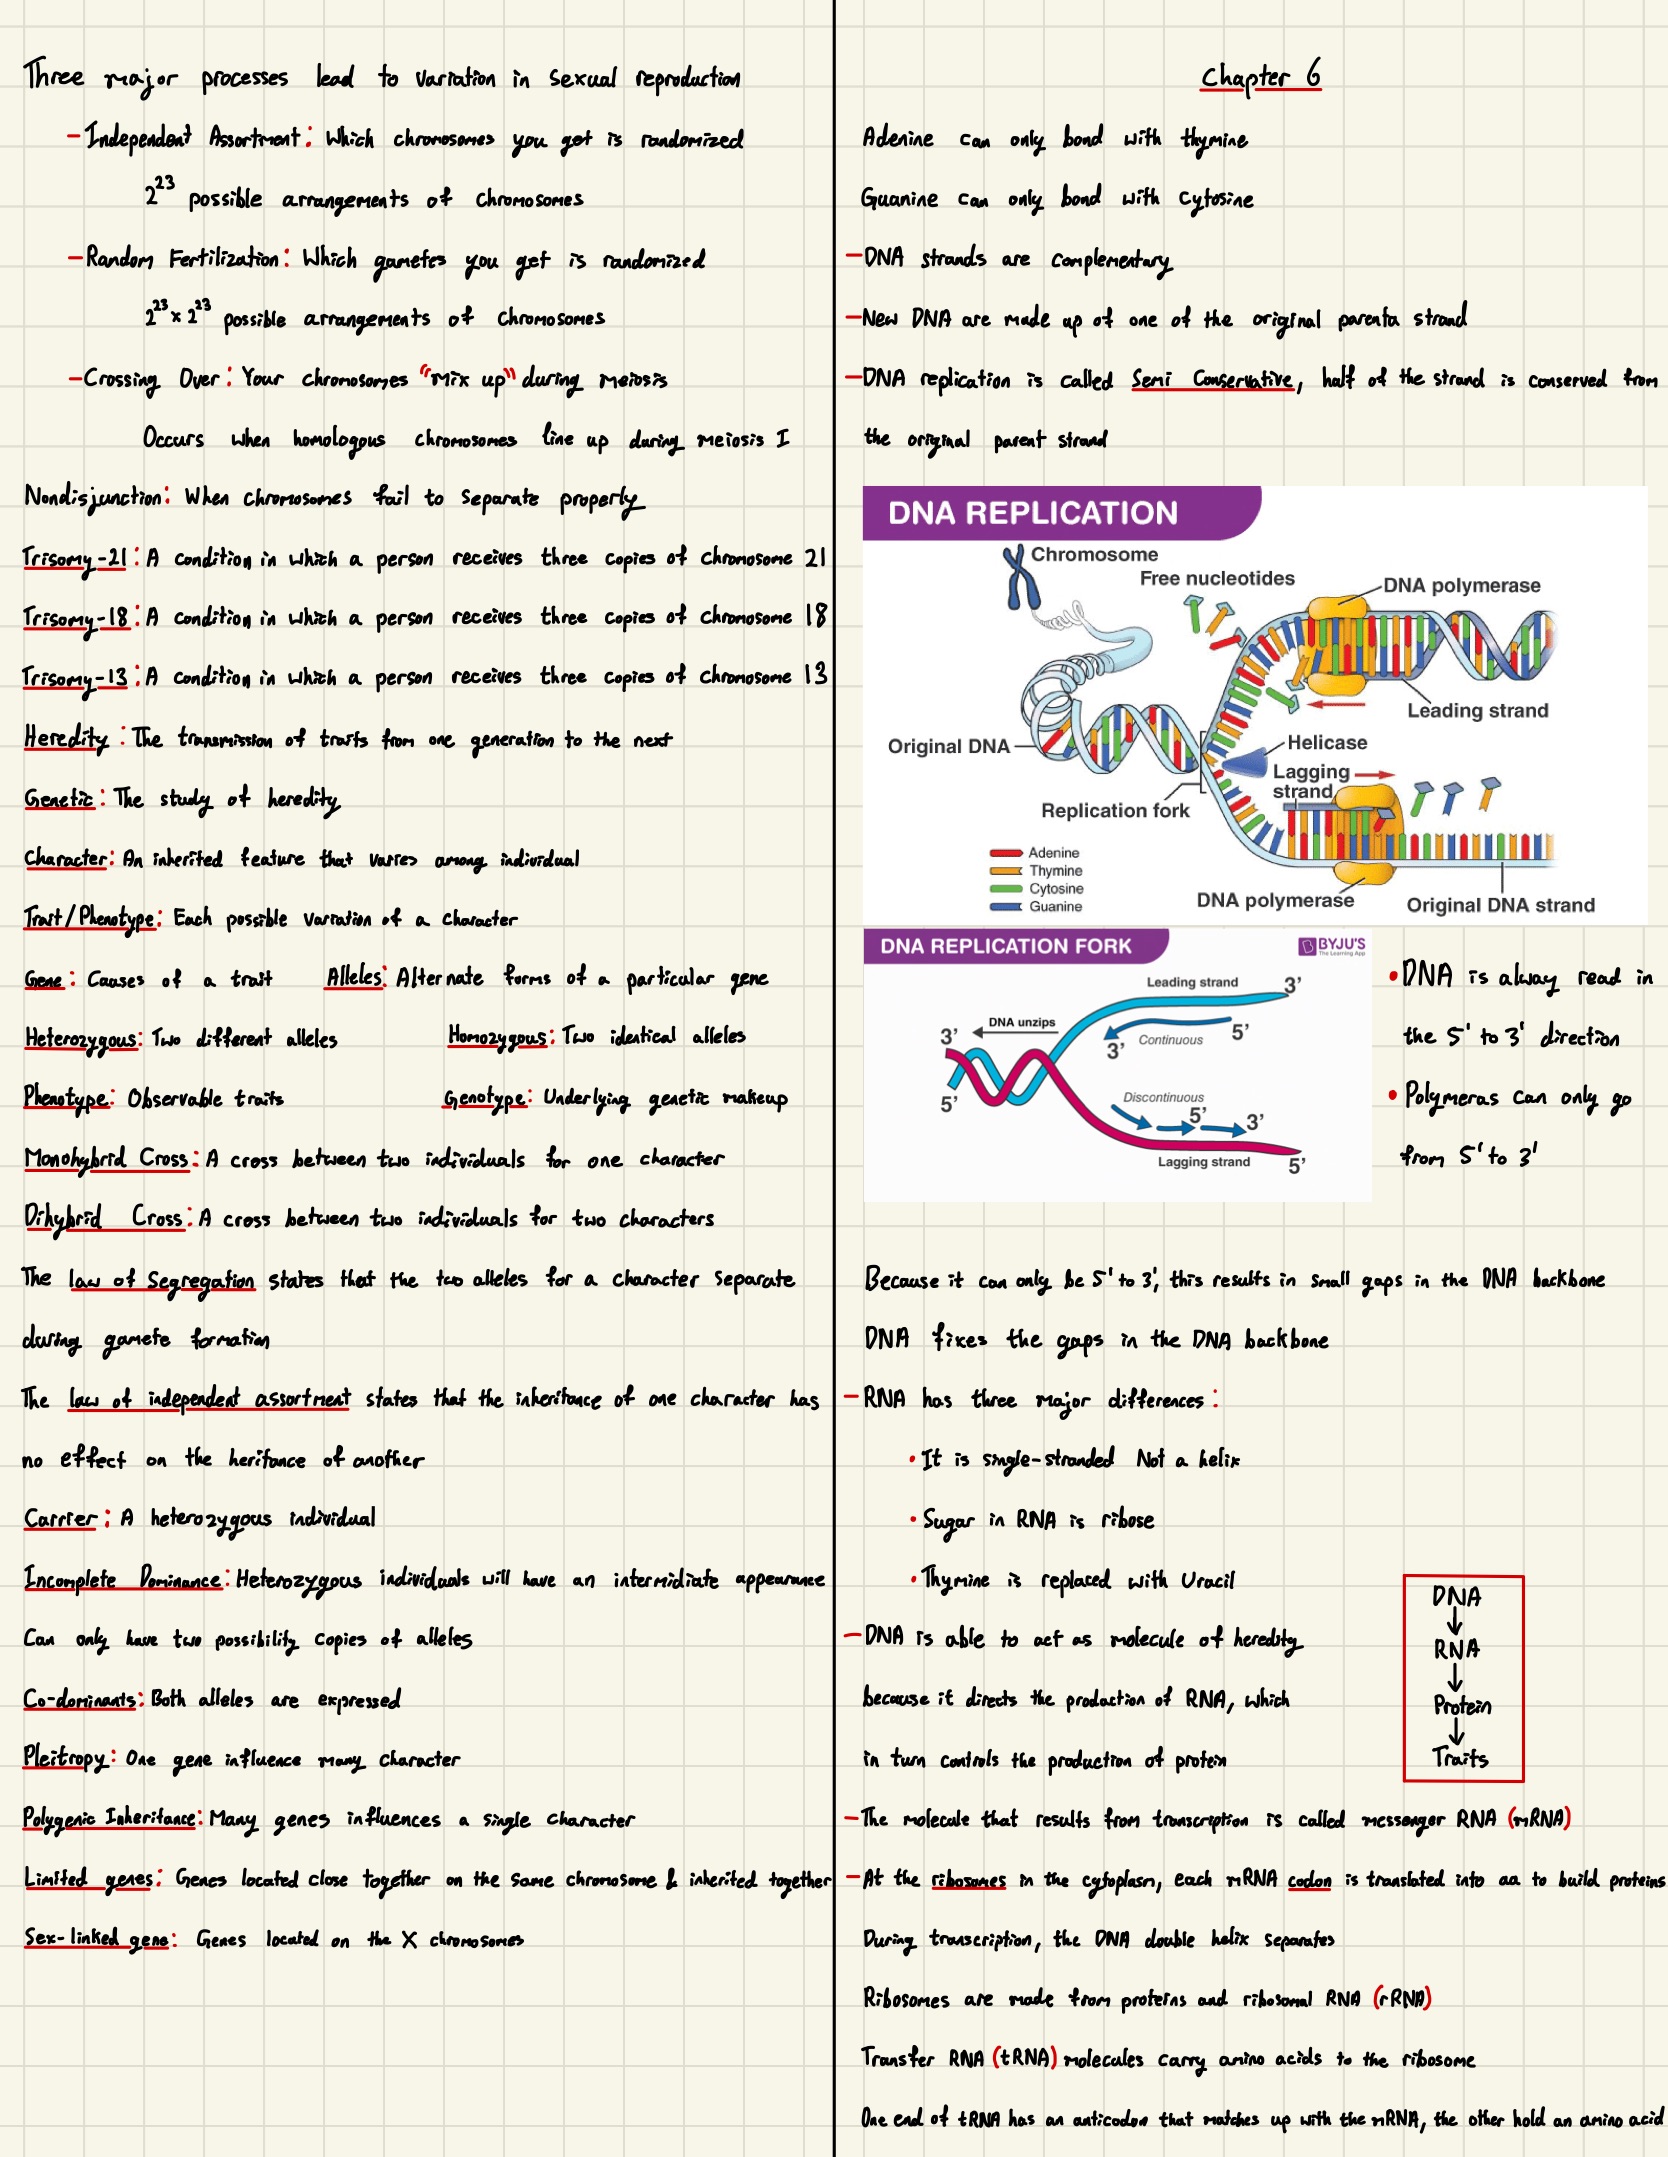 Three major processes lead to variation in sexual reproduction
- Independent Assortment: Which chromosomes you get is randomized
2^23 possible arrangements of chromosomes
- Random Fertilization: Which gametes you get is randomized
2^23 x 2^23 possible arrangements of chromosomes
- Crossing Over: Your chromosomes "mix up" during meiosis
Occurs when homologous chromosomes line up during meiosis I
Nondisjunction: When chromosomes fail to separate properly
Trisomy-21: A condition in which a person receives three copies of chromosome 21
Trisomy-18: A condition in which a person receives three copies of chromosome 18
Trisomy-13: A condition in which a person receives three copies of chromosome 13
Heredity: The transmission of traits from one generation to the next
Genetic: The study of heredity
Character: An inherited feature that varies among individual
Trait/Phenotype: Each possible variation of a character
Gene: Causes of a trait Alleles: Alternate forms of a particular gene
Heterozygous: Two different alleles Homozygous: Two identical alleles
Phenotype: Observable traits Genotype: Underlying genetic makeup
Monohybrid Cross: A cross between two individuals for one character
Dihybrid Cross: A cross between two individuals for two characters
The law of Segregation states that the two alleles for a character separate
during gamete formation
The law of independent assortment states that the inheritance of one character has
no effect on the heritance of another
Carrier: A heterozygous individual
Incomplete Dominance: Heterozygous individuals will have an intermidiate appearance
Can only have two possibility copies of alleles
Co-dominants: Both alleles are expressed
Pleitropy: One gene influence many character
Polygenic Inheritance: Many genes influences a single character
Limited genes: Genes located close together on the same chromosome & inherited together
Sex-linked gene: Genes located on the X chromosomes
Chapter 6
Adenine can only bond with thymine
Guanine can only bond with cytosine
- DNA strands are complementary
- New DNA are made up of one of the original parenta strand
- DNA replication is called Semi Conservative, half of the strand is conserved from
the original parent strand
DNA REPLICATION
Chromosome
Free nucleotides
DNA polymerase
Leading strand
Original DNA
Helicase
Lagging
strand
Replication fork
Adenine
Thymine
Cytosine
Guanine
DNA polymerase
Original DNA strand
DNA REPLICATION FORK
BYJU'S
The Learning App
Leading strand
3'
DNA unzips
3'
5'
3'
Continuous
5'
Discontinuous
5'
3'
Lagging strand
5'
• DNA is alway read in
the 5' to 3' direction
• Polymeras can only go
from 5' to 3'
Because it can only be 5' to 3', this results in small gaps in the DNA backbone
DNA fixes the gaps in the DNA backbone
- RNA has three major differences:
• It is single-stranded Not a helix
• Sugar in RNA is ribose
• Thymine is replaced with Uracil
- DNA is able to act as molecule of heredity
because it directs the production of RNA, which
in turn controls the production of protein
DNA
↓
RNA
↓
Protein
↓
Traits
- The molecule that results from transcription is called messenger RNA (mRNA)
- At the ribosomes in the cytoplasm, each mRNA codon is translated into aa to build proteins
During transcription, the DNA double helix separates
Ribosomes are made from proteins and ribosomal RNA (rRNA)
Transfer RNA (tRNA) molecules carry amino acids to the ribosome
One end of tRNA has an anticodon that matches up with the mRNA, the other hold an amino acid